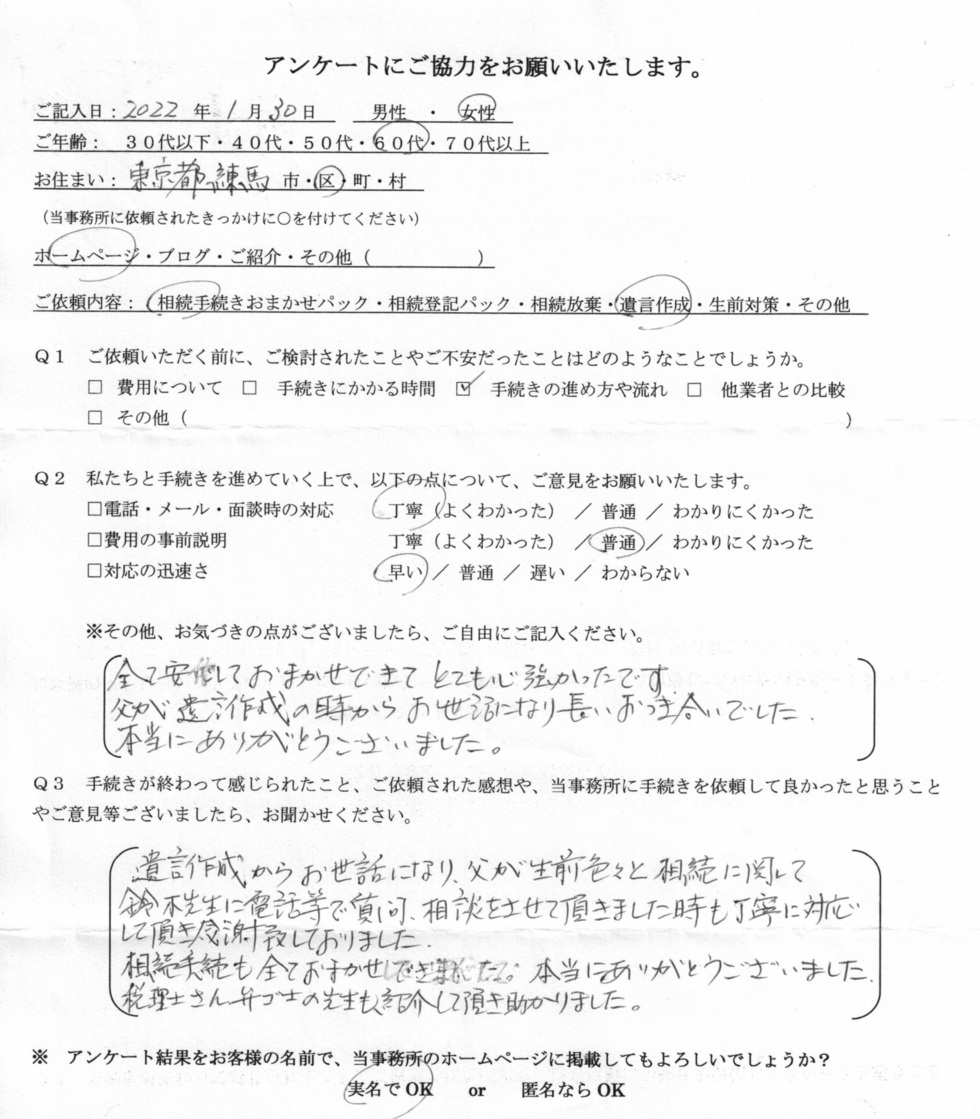 アンケートにご協力をお願いいたします。
ご記入日：2022 年 1 月 30 日　　男性　・　女性
ご年齢：　３０代以下・４０代・５０代・６０代・７０代以上
お住まい：東京都 練馬 市・区・町・村
（当事務所に依頼されたきっかけに○を付けてください）
ホームページ・ブログ・ご紹介・その他（　　　　　　）
ご依頼内容：（相続手続きおまかせパック・相続登記パック・相続放棄・遺言作成・生前対策・その他
Ｑ１　ご依頼いただく前に、ご検討されたことやご不安だったことはどのようなことでしょうか。
□ 費用について　□　手続きにかかる時間　☑　手続きの進め方や流れ　□　他業者との比較
□ その他（　　　　　　　　　　　　　　　　　　　　　　　　　　　　　　　　　　　）
Ｑ２　私たちと手続きを進めていく上で、以下の点について、ご意見をお願いいたします。
□電話・メール・面談時の対応　　　丁寧（よくわかった）　／　普通　／　わかりにくかった
□費用の事前説明　　　　　　　　　丁寧（よくわかった）　／　普通　／　わかりにくかった
□対応の迅速さ　　　　　　　　　　早い　／　普通　／　遅い　／　わからない
※その他、お気づきの点がございましたら、ご自由にご記入ください。
全て安心しておまかせできて とても心強かったです
父が遺言作成の時からお世話になり長いおつき合いでした.
本当にありがとうございました。
Ｑ３　手続きが終わって感じられたこと、ご依頼された感想や、当事務所に手続きを依頼して良かったと思うこと
やご意見等ございましたら、お聞かせください。
遺言作成からお世話になり、父が生前色々と相続に関して
鈴木先生に電話等で質問、相談をさせて頂きました時も丁寧に対応
して頂き感謝致しておりました.
相続手続も全ておまかせ 本当にありがとうございました.
税理士さん弁ゴ士の先生も紹介して頂き助かりました。
※　アンケート結果をお客様の名前で、当事務所のホームページに掲載してもよろしいでしょうか？
実名で OK　　or　　匿名なら OK